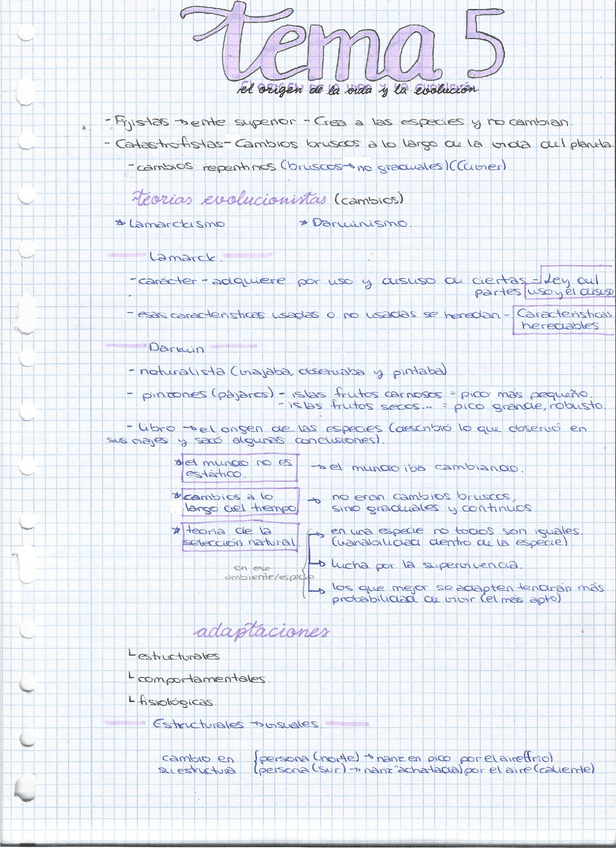 tema 5
el origen de la vida y la evolución
- Fijistas → ente superior - Crea a las especies y no cambian.
- Catastrofistas - Cambios bruscos a lo largo de la vida del planeta.
- cambios repentinos (bruscos → no graduales) (Cuvier)
teorías evolucionistas (cambios)
* Lamarckismo * Darwinismo.
Lamarck.
- carácter - adquiere por uso y disuso de ciertas - Ley del
partes uso y el disuso
- esas características usadas o no usadas se heredan - Características
heredables
Darwin
- naturalista (viajaba, observaba y pintaba)
- pinzones (pájaros) - islas frutos carnosos = pico más pequeño.
- islas frutos secos... = pico grande, robusto.
- libro → el origen de las especies (describió lo que observó en
sus viajes y sacó algunas conclusiones).
* el mundo no es → el mundo iba cambiando.
estático.
* cambios a lo → no eran cambios bruscos,
largo del tiempo sino graduales y continuos
* teoría de la → en una especie no todos son iguales.
selección natural (variabilidad dentro de la especie)
en ese → lucha por la supervivencia.
ambiente/espacio
→ los que mejor se adapten tendrán más
probabilidad de vivir (el más apto)
adaptaciones
└ estructurales
└ comportamentales.
└ fisiológicas
Estructurales → visuales.
cambio en { persona (norte) → nariz en pico por el aire (frío)
su estructura (persona (sur) → nariz "achatada" por el aire (caliente)